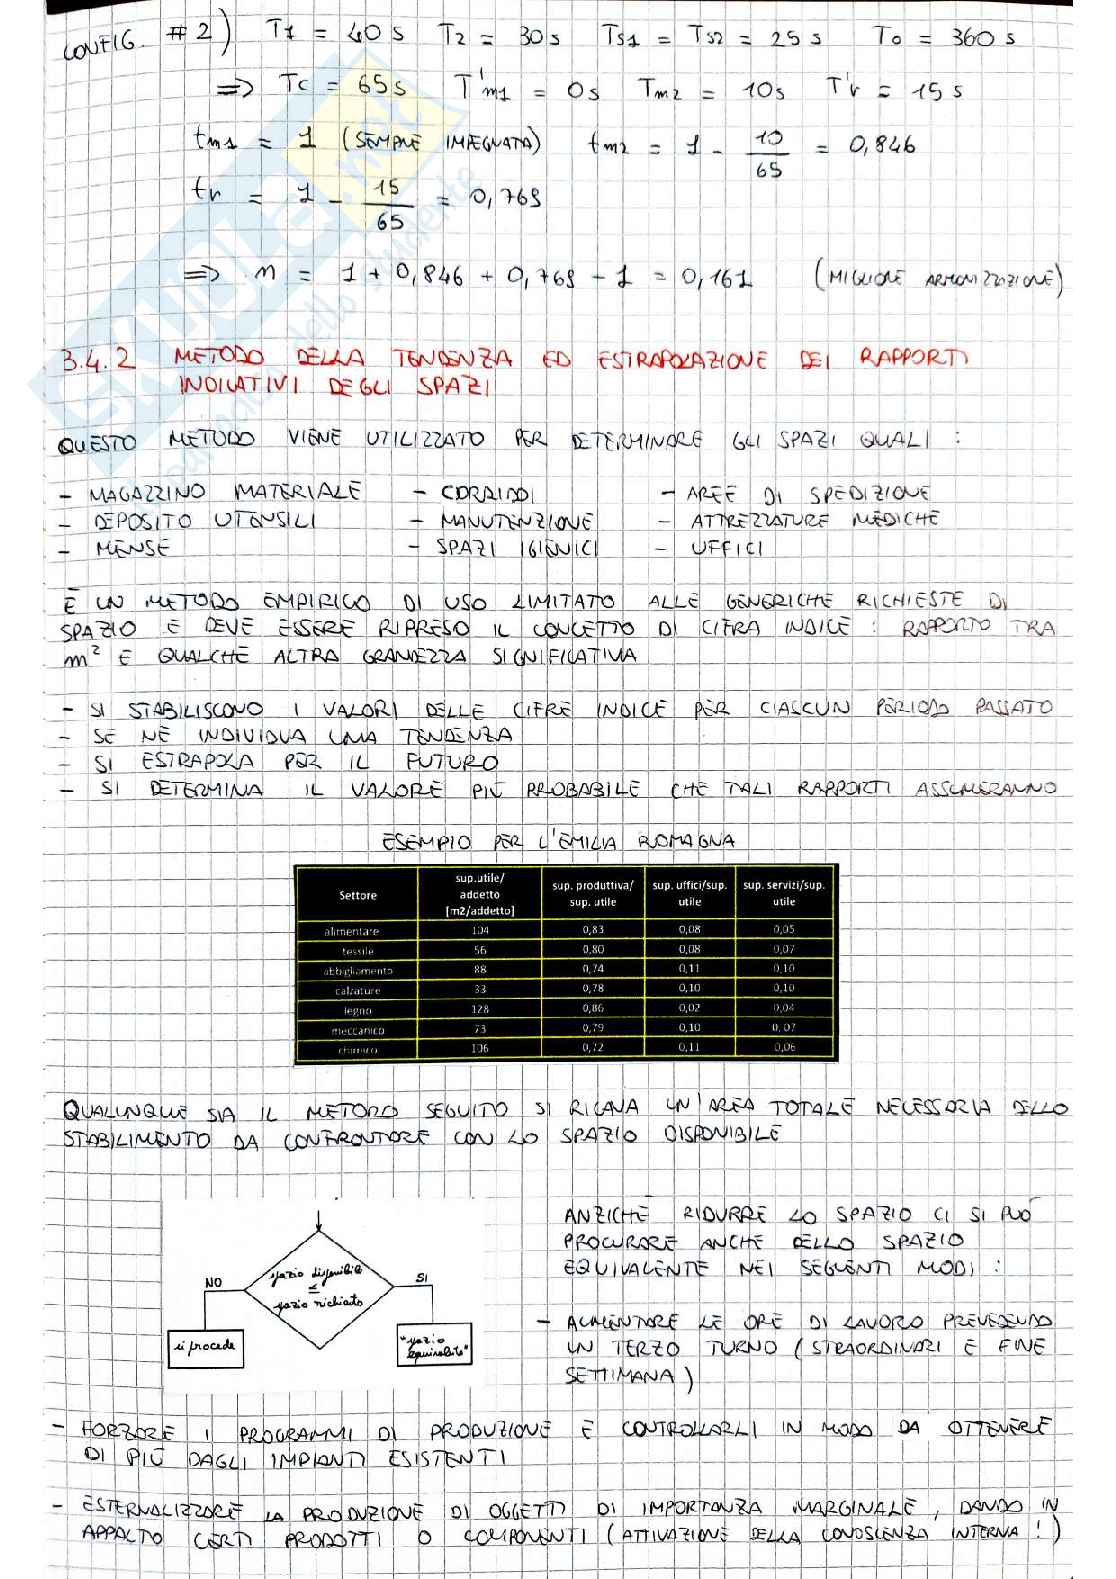 CONFIG. #2) T1 = 40 s T2 = 30 s Ts1 = Ts2 = 25 s To = 360 s
=> Tc = 65 s T'm1 = 0 s Tm2 = 10 s T'r = 15 s
tm1 = 1 (SEMPRE IMPEGNATA) tm2 = 1 - 10/65 = 0,846
tr = 1 - 15/65 = 0,769
=> n = 1 + 0,846 + 0,769 - 1 = 0,161 (MIGLIORE ARMONIZZAZIONE)
3.4.2 METODO DELLA TENDENZA ED ESTRAPOLAZIONE DEI RAPPORTI
INDICATIVI DEGLI SPAZI
QUESTO METODO VIENE UTILIZZATO PER DETERMINARE GLI SPAZI QUALI :
- MAGAZZINO MATERIALE - CORRIDOI - AREE DI SPEDIZIONE
- DEPOSITO UTENSILI - MANUTENZIONE - ATTREZZATURE MEDICHE
- MENSE - SPAZI IGIENICI - UFFICI
È UN METODO EMPIRICO DI USO LIMITATO ALLE GENERICHE RICHIESTE DI
SPAZIO E DEVE ESSERE RIPRESO IL CONCETTO DI CIFRA INDICE : RAPPORTO TRA
m² E QUALCHE ALTRA GRANDEZZA SIGNIFICATIVA
- SI STABILISCONO I VALORI DELLE CIFRE INDICE PER CIASCUN PERIODO PASSATO
- SE NE INDIVIDUA UNA TENDENZA
- SI ESTRAPOLA PER IL FUTURO
- SI DETERMINA IL VALORE PIÙ PROBABILE CHE TALI RAPPORTI ASSUMERANNO
ESEMPIO PER L'EMILIA ROMAGNA
Settore sup.utile/ addetto [m2/addetto] sup. produttiva/ sup. utile sup. uffici/sup. utile sup. servizi/sup. utile
alimentare 104 0,83 0,08 0,05
tessile 56 0,80 0,08 0,07
abbigliamento 88 0,74 0,11 0,10
calzature 33 0,78 0,10 0,10
legno 128 0,86 0,02 0,04
meccanico 73 0,79 0,10 0,07
chimico 106 0,72 0,11 0,06
QUALUNQUE SIA IL METODO SEGUITO SI RICAVA UN'AREA TOTALE NECESSARIA DELLO
STABILIMENTO DA CONFRONTARE CON LO SPAZIO DISPONIBILE
NO
spazio disponibile
≤
spazio richiesto
SI
si procede
"spazio
equivalente"
ANZICHÉ RIDURRE LO SPAZIO CI SI PUÒ
PROCURARE ANCHE DELLO SPAZIO
EQUIVALENTE NEI SEGUENTI MODI :
- AUMENTARE LE ORE DI LAVORO PREVEDENDO
UN TERZO TURNO (STRAORDINARI E FINE
SETTIMANA)
- FORZARE I PROGRAMMI DI PRODUZIONE E CONTROLLARLI IN MODO DA OTTENERE
DI PIÙ DAGLI IMPIANTI ESISTENTI
- ESTERNALIZZARE LA PRODUZIONE DI OGGETTI DI IMPORTANZA MARGINALE, DANDO IN
APPALTO CERTI PRODOTTI O COMPONENTI (ATTIVAZIONE DELLA CONOSCENZA INTERNA!)
SKUOLA.net
dello studente